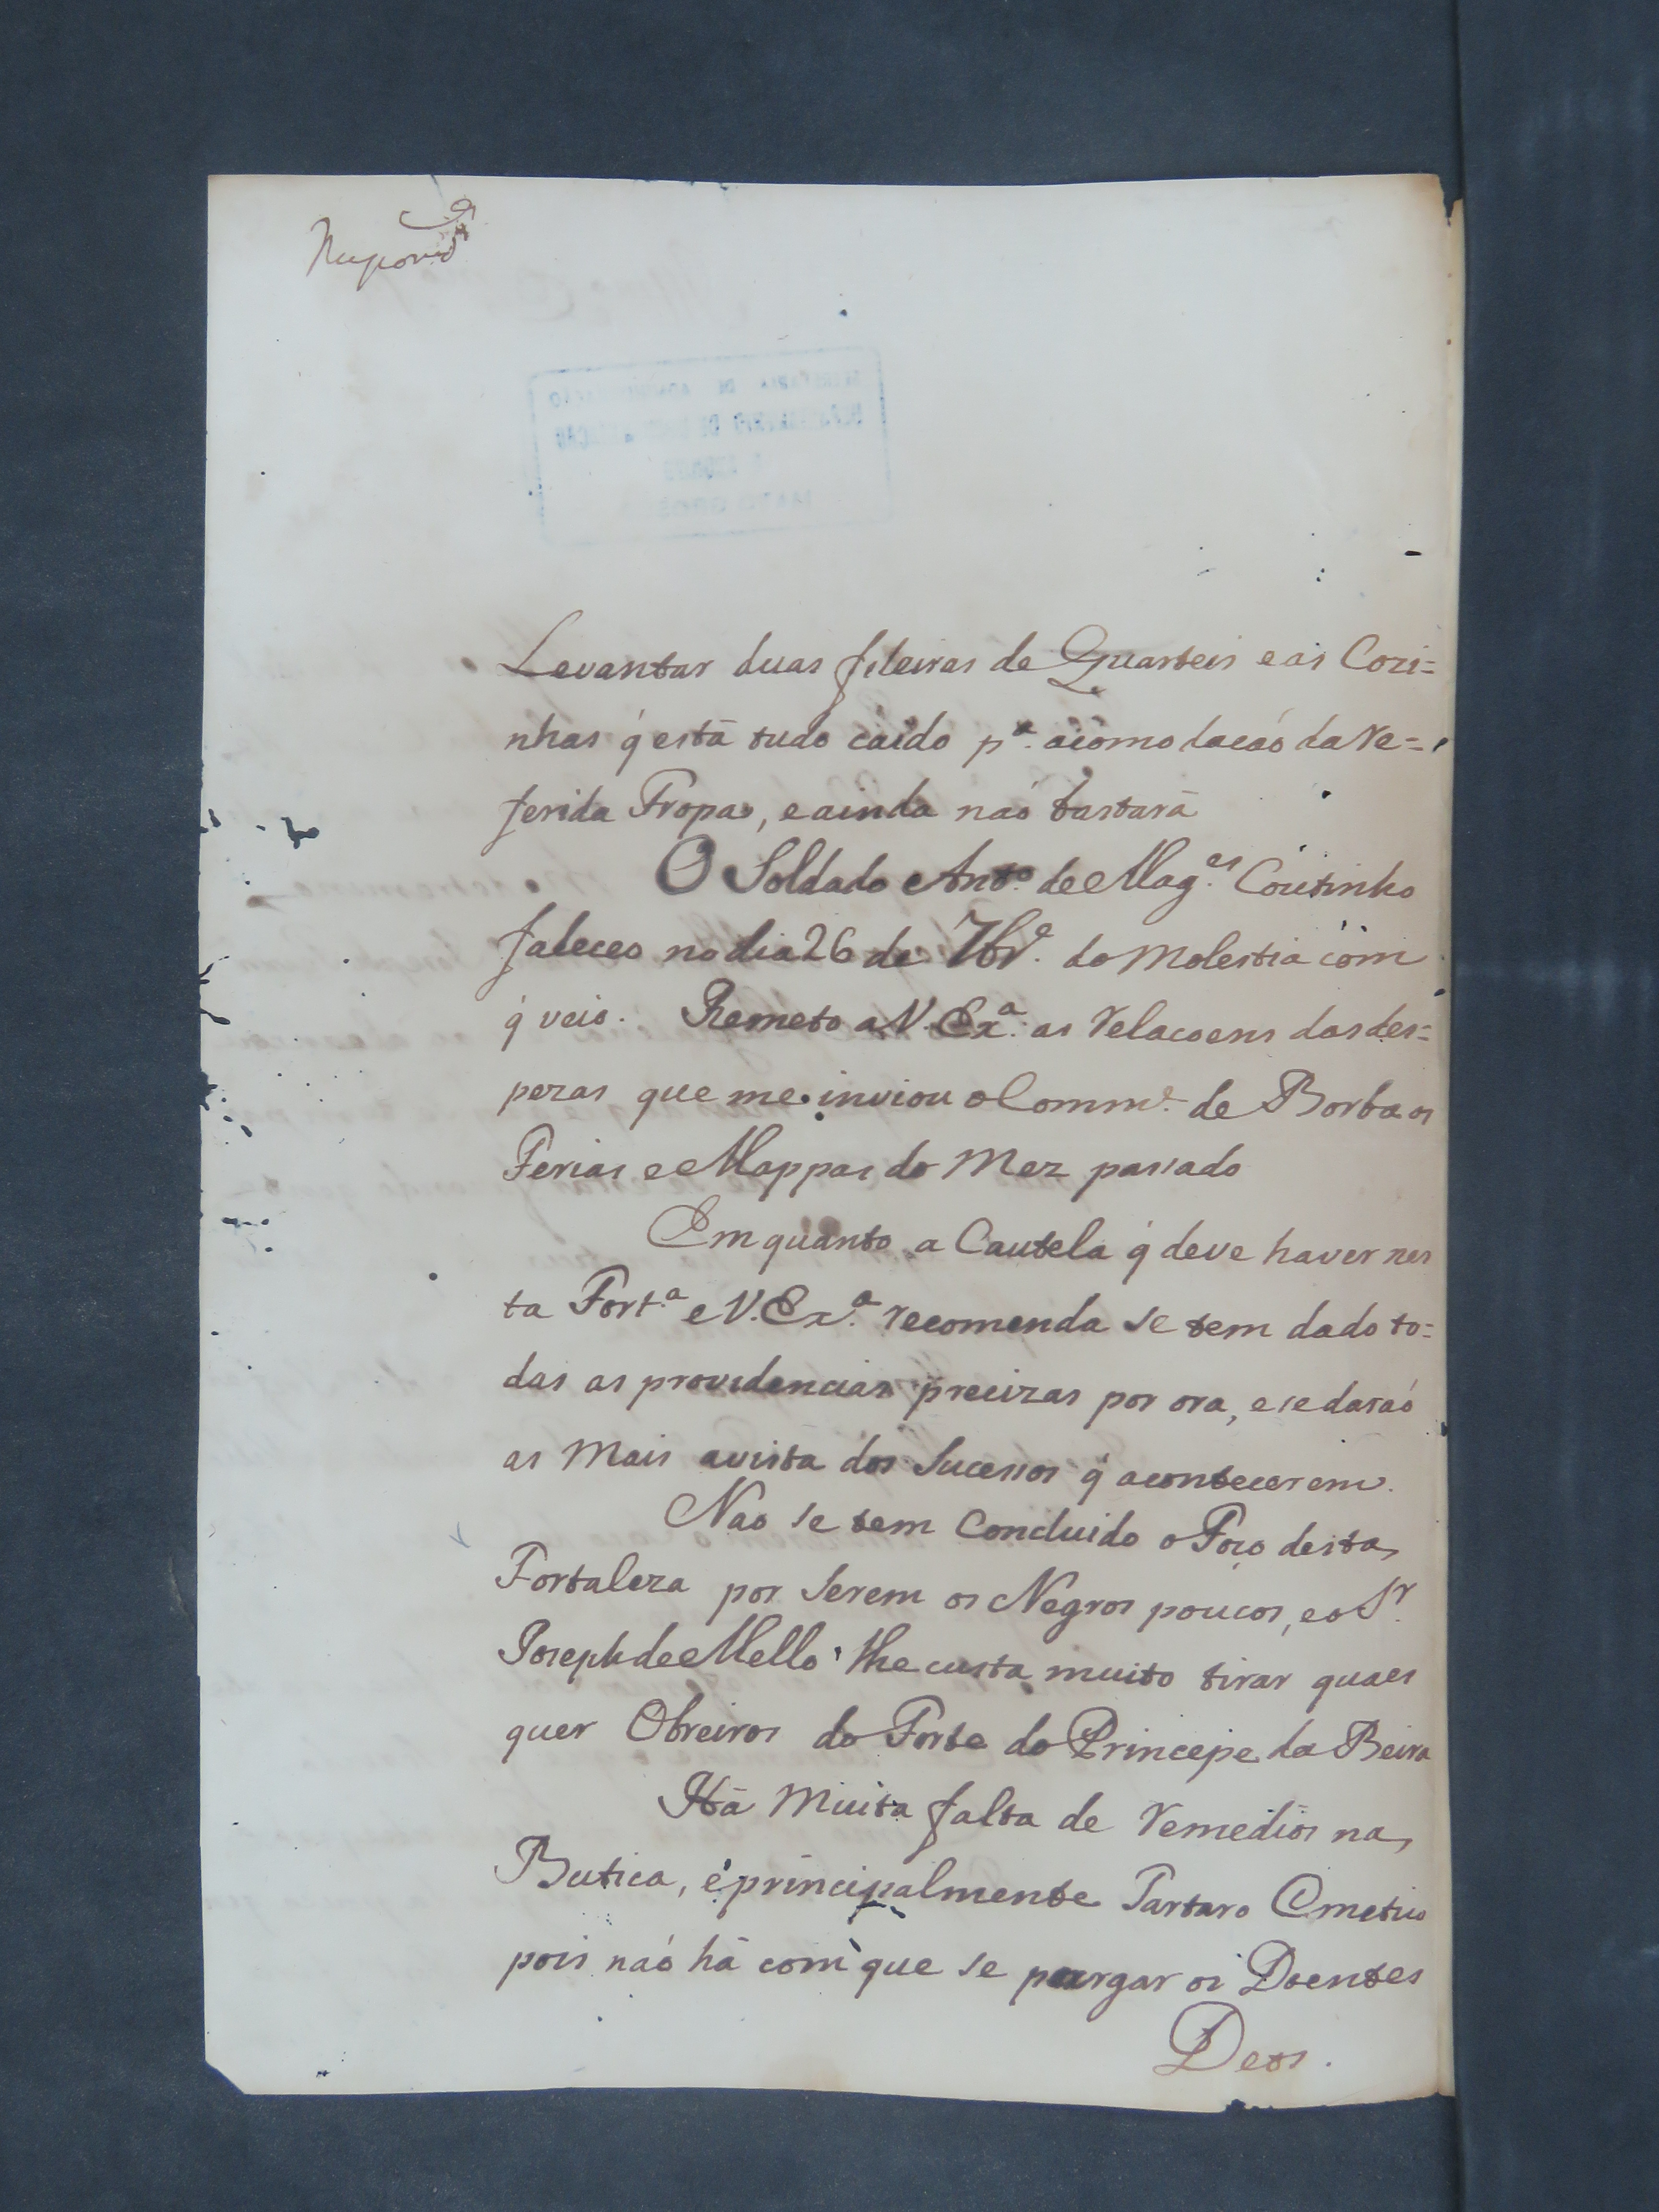 Respond.ª
Levantar duas fileiras de Quarteis e as Cozi=
nhas q́ está tudo caido pª. acomodacaó da re=
ferida Tropa, e ainda naó bastará
O Soldado Antº. de Mag.es Coutinho
faleceo no dia 26 de 7br.º da Molestia com
q́ veio. Remeto a V. Exª. as relacoens das des=
pezas que me inviou o Comm.e de Borba os
Ferias e Mappas do Mez passado
Em quanto a Cautela q́ deve haver nes
ta Fort.ª e V. Ex.ª recomenda se tem dado to=
das as providencias precizas por ora, e se daraó
as Mais avista dos Sucessos q́ acontecerem.
Nao se tem Concluido o Poço desta
Fortaleza por Serem os Negros poucos, e o Sr.
Joseph de Mello lhe custa muito tirar quaes
quer Obreiros do Forte do Principe da Beira
Há Muita falta de remedios na
Butica, é principalmente Tartaro Emetico
pois naó há com que se purgar os Doentes
Deos.